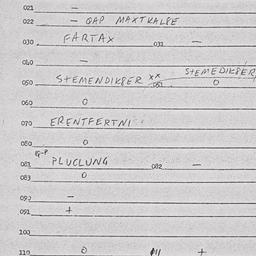 021 —
022 — GAP MAXTKALSE
030 FARTAX 031 —
040 —
050 STEMENDIKSER xx 051 STEMEDIKSER O
060 O
070 ERENTFERTNI
080 O
081 PLUCLUNG 082 —
083 O
090 —
091 +
100
110 O 111 +